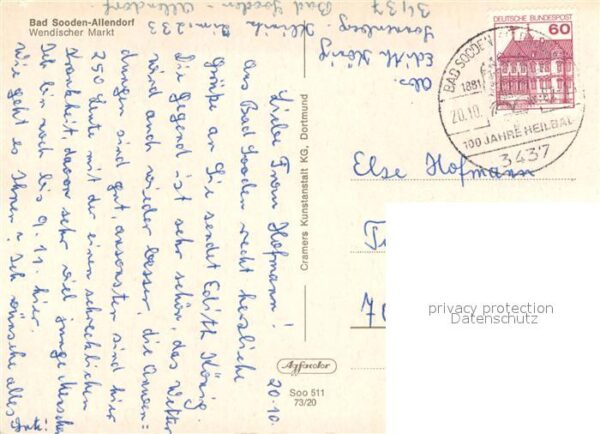 Bad Sooden-Allendorf
Wendischer Markt
Abs.
Edith König
Sonnenberg Klinik
Zim. 233
3437
Bad Sooden-Allendorf
20.10.
Liebe Frau Hofmann!
Aus Bad Sooden recht herzliche
Grüße an Sie sendet Edith König.
Die Gegend ist sehr schön, das Wetter
wird auch wieder besser, die Anwen=
dungen sind gut, ansonsten sind hier
250 Leute mit der einen schrecklichen
Krankheit, davon sehr viel junge Menschen
Ich bin noch bis 9.11. hier.
Wie geht es Ihnen? Ich wünsche alles
Gute!
Cramers Kunstanstalt KG, Dortmund
Agfacolor
Soo 511
73/20
DEUTSCHE BUNDESPOST
60
BAD SOODEN
1881
20.10.
100 JAHRE HEILBAD
3437
Else Hofmann
privacy protection
Datenschutz